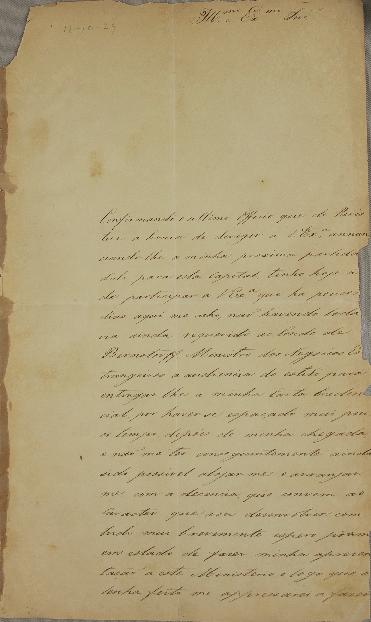 Ill.mo Ex.mo Snr.
Confirmando o ultimo Officio que de Paris
tive a honra de dirigir a V Ex.a annun
ciando lhe a minha proxima partida
dali para esta capital, tenho hoje a
de participar a V Ex.a que ha poucos
dias aqui me acho, não havendo toda
via ainda requerido ao Conde de
Bernstorff Ministro dos Negocios Es
trangeiros a audiencia do estilo para
entregar lhe a minha Carta Creden
cial por haver se espaçado mui pou
co tempo depois de minha chegada
e não me ter conseguintemente ainda
sido possivel alojar me e arranjar
me com a decencia que convem ao
caracter que vou desenvolver com
tudo mui brevemente espero
em estado de fazer minha apresen
tação a este Ministerio e logo que a
tenha feito me appressarei a fazer